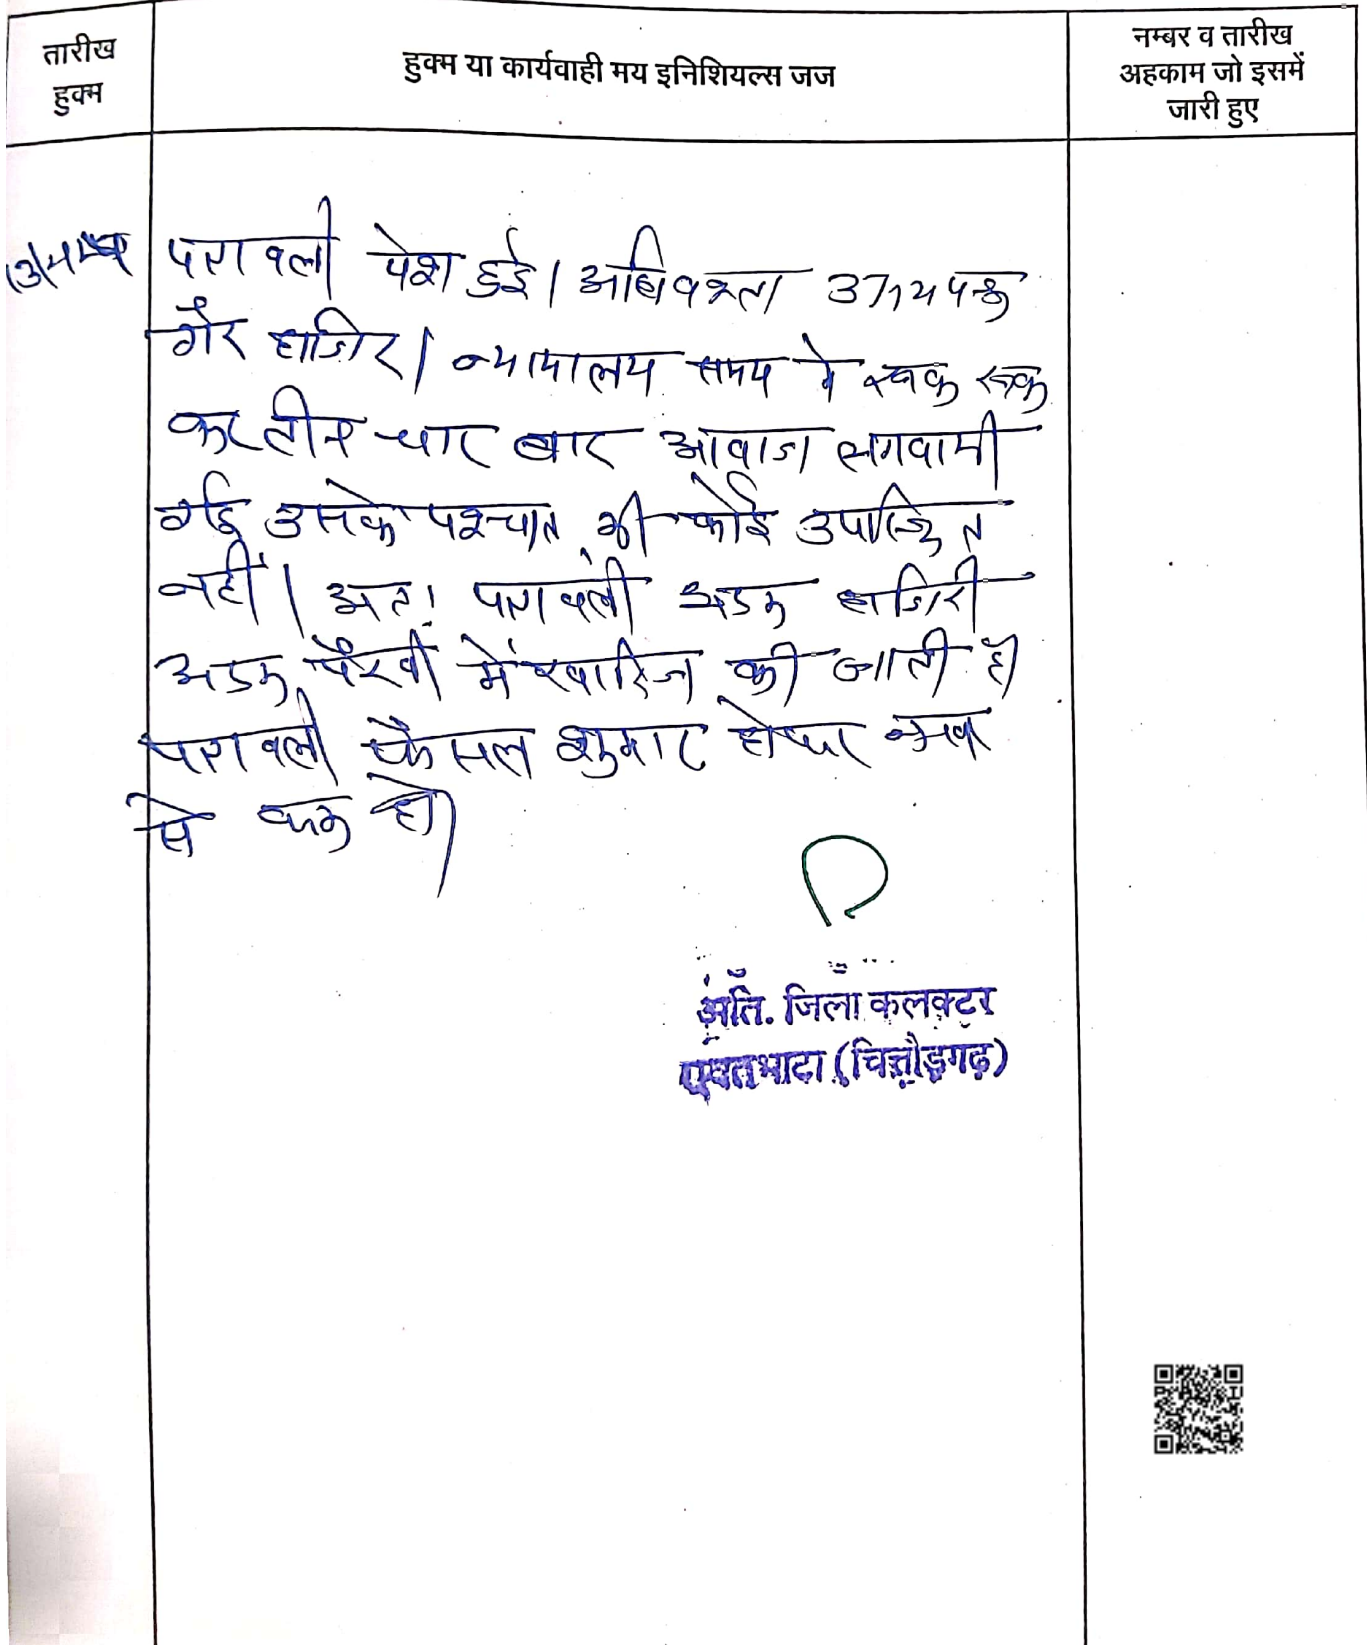 तारीख
हुक्म
हुक्म या कार्यवाही मय इनिशियल्स जज
नम्बर व तारीख
अहकाम जो इसमें
जारी हुए
पत्रावली पेश हुई। अधिवक्ता उभयपक्ष
गैर हाजिर। न्यायालय समय मे रूक रूक
कर तीन चार बार आवाज लगवायी
गई उसके पश्चात भी कोई उपस्थित
नहीं। अतः पत्रावली अदम हाजिरी
अदम पैरवी में खारिज की जाती है।
पत्रावली फैसल शुमार होकर नम्बर
से कम हो।
अति. जिला कलक्टर
(चित्तौड़गढ़)